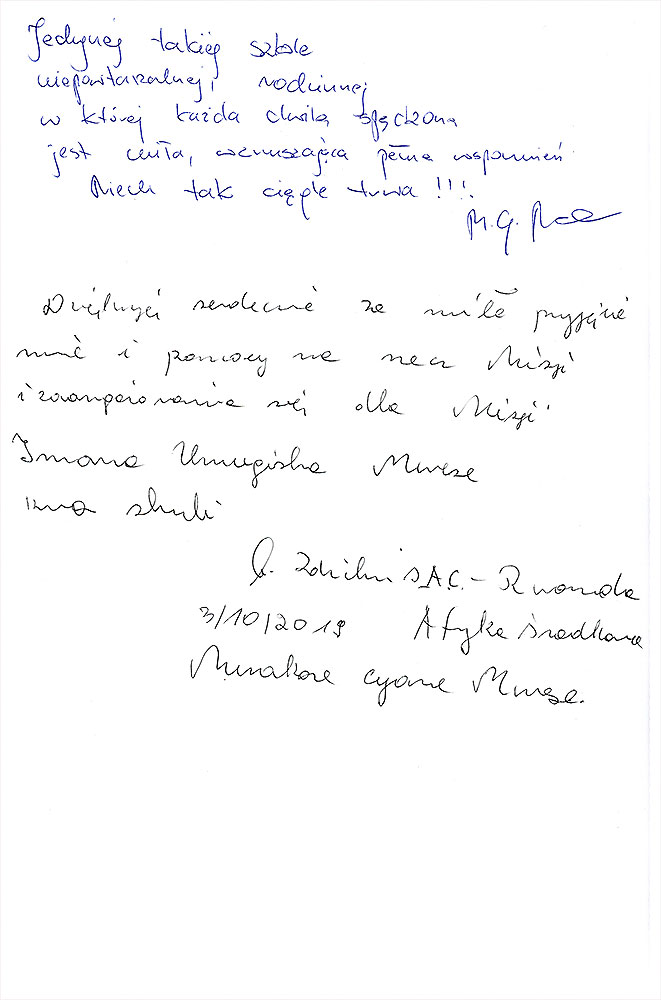 Jedynej takiej szkole
niepowtarzalnej, rodzinnej
w której każda chwila spędzona
jest miła, wzruszająca pełna wspomnień
Niech tak ciągle trwa !!!
M. G.
Dziękuję serdecznie za miłe przyjęcie
mnie i pomocy na rzecz Misji
i zaangażowania się dla Misji
Imana Umugisha Mwese
kwa shuli
SAC. - Rwanda
3/10/2019 Afryka Środkowa
Murakoze cyane Mwese.